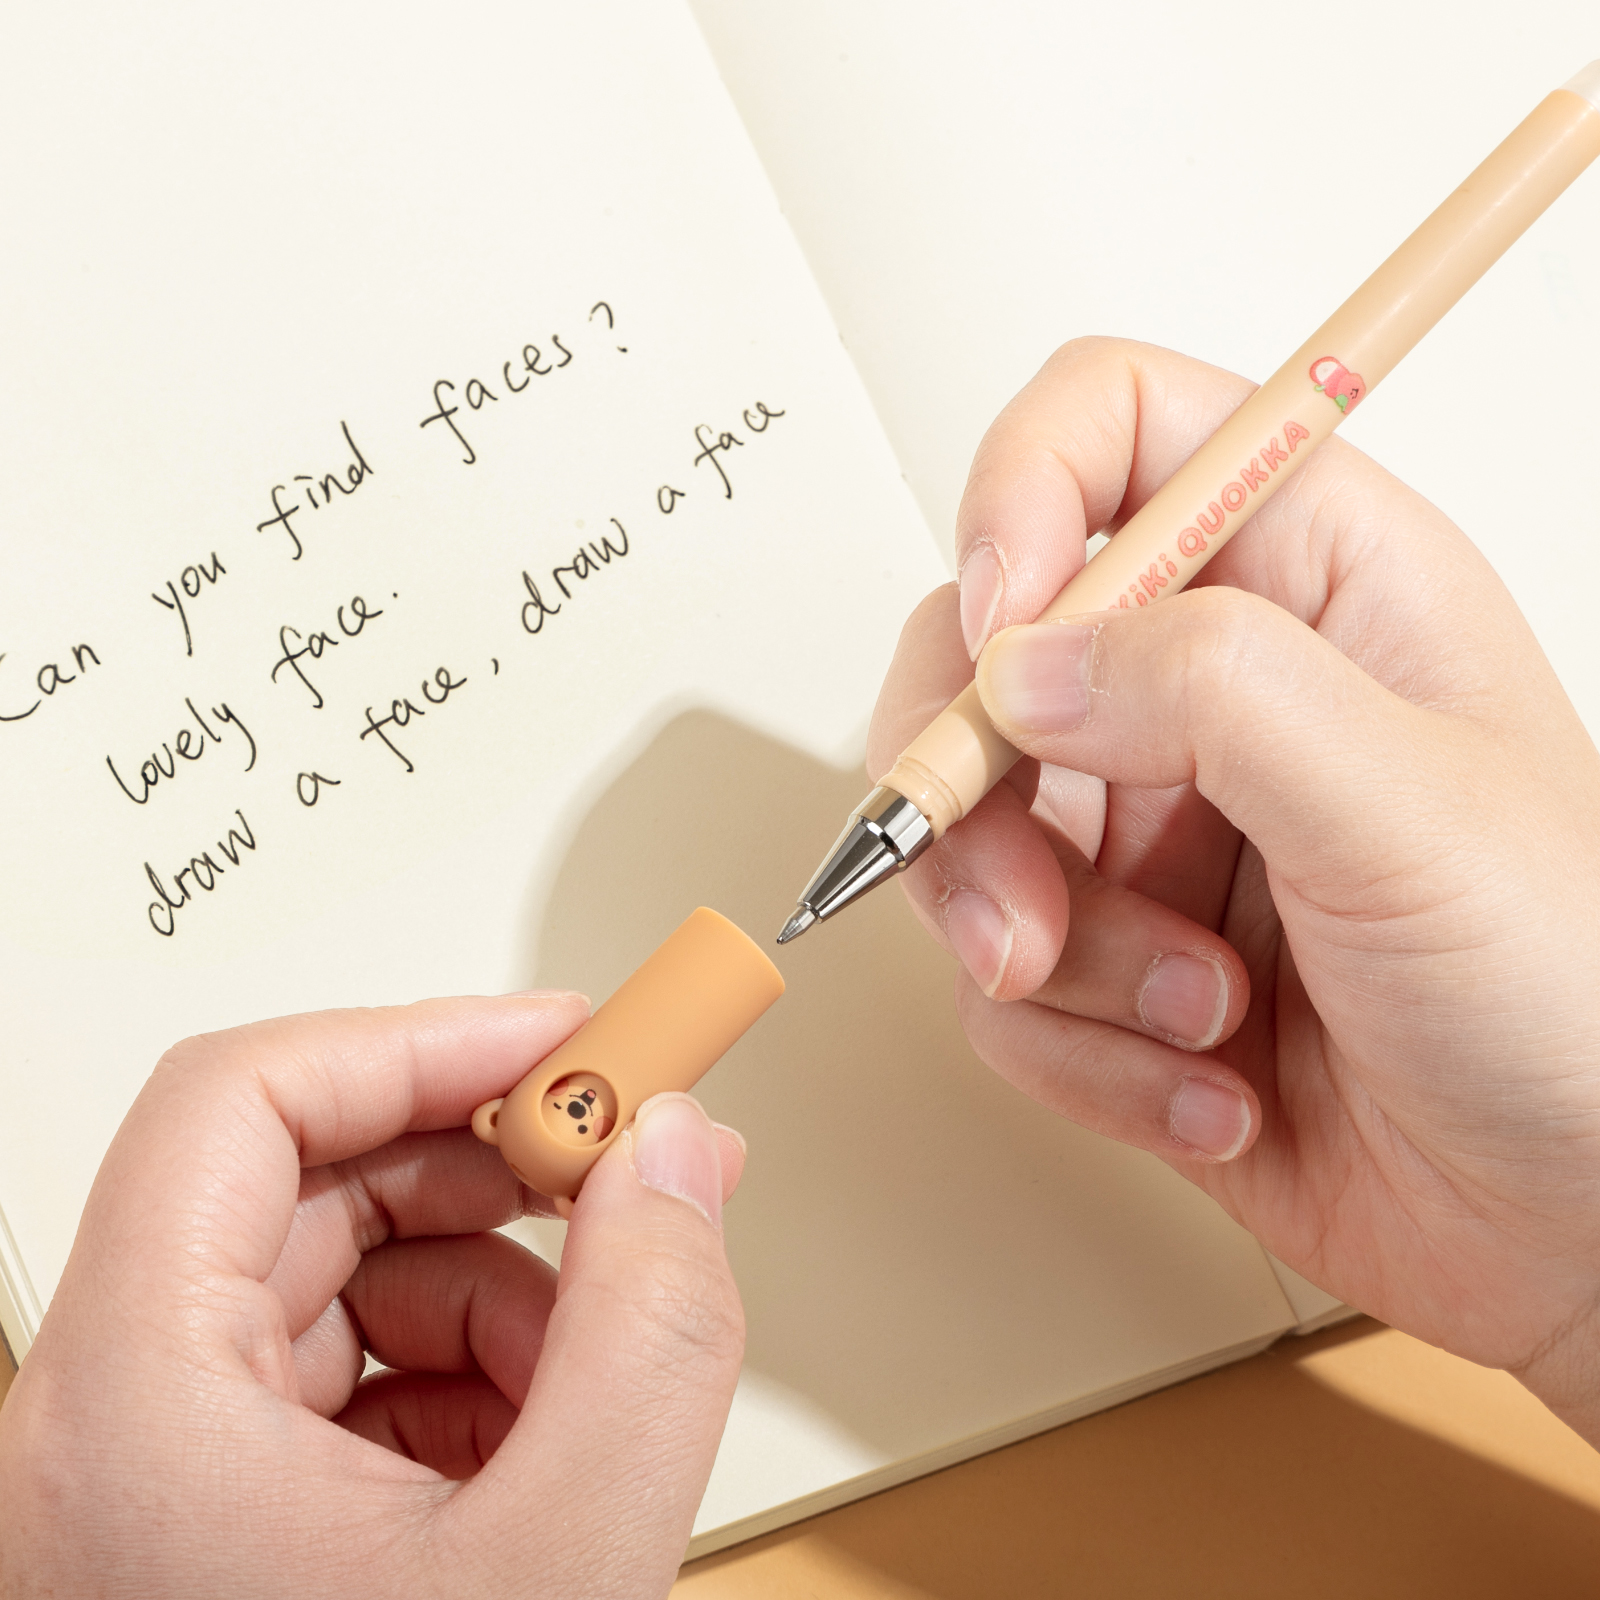 Can you find faces?
lovely face.
draw a face, draw a face
KiKi QUOKKA